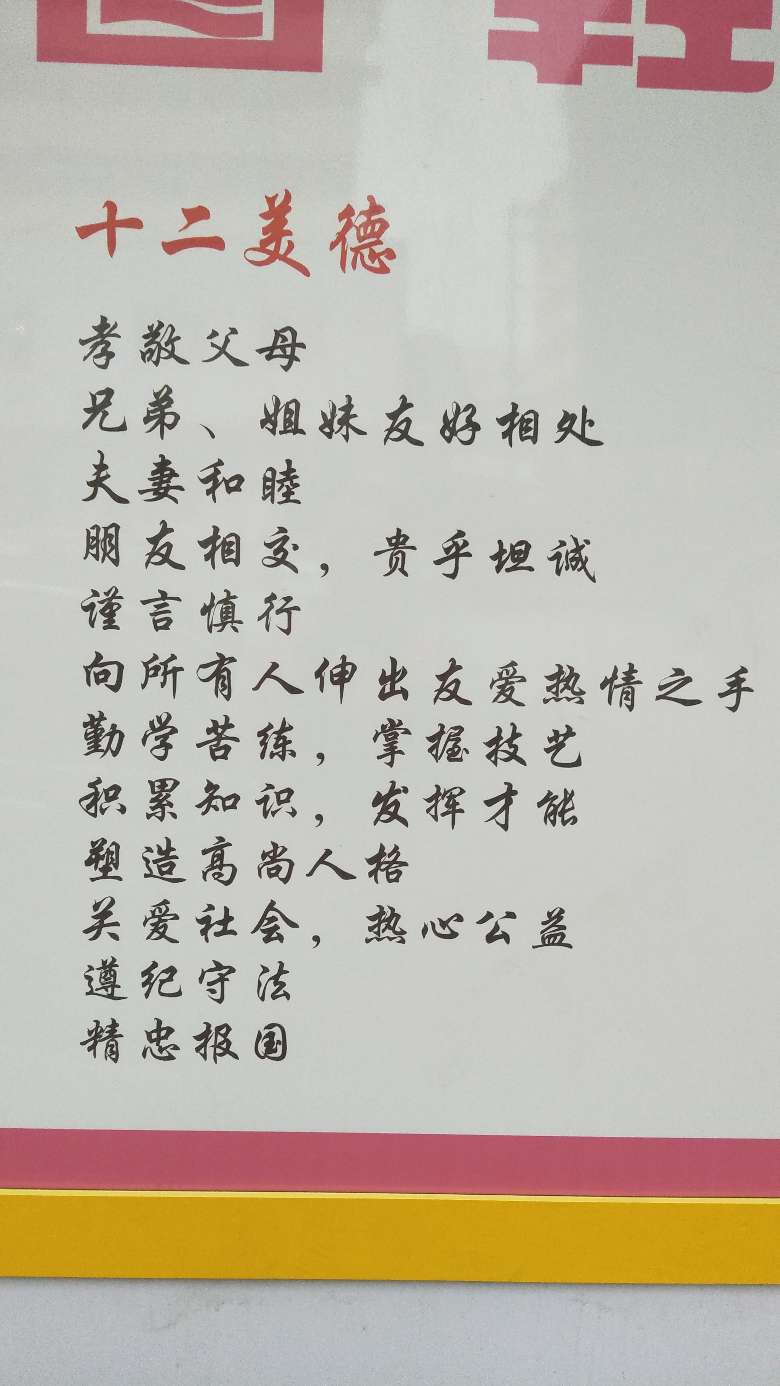 十二美德
孝敬父母
兄弟、姐妹友好相处
夫妻和睦
朋友相交，贵乎坦诚
谨言慎行
向所有人伸出友爱热情之手
勤学苦练，掌握技艺
积累知识，发挥才能
塑造高尚人格
关爱社会，热心公益
遵纪守法
精忠报国